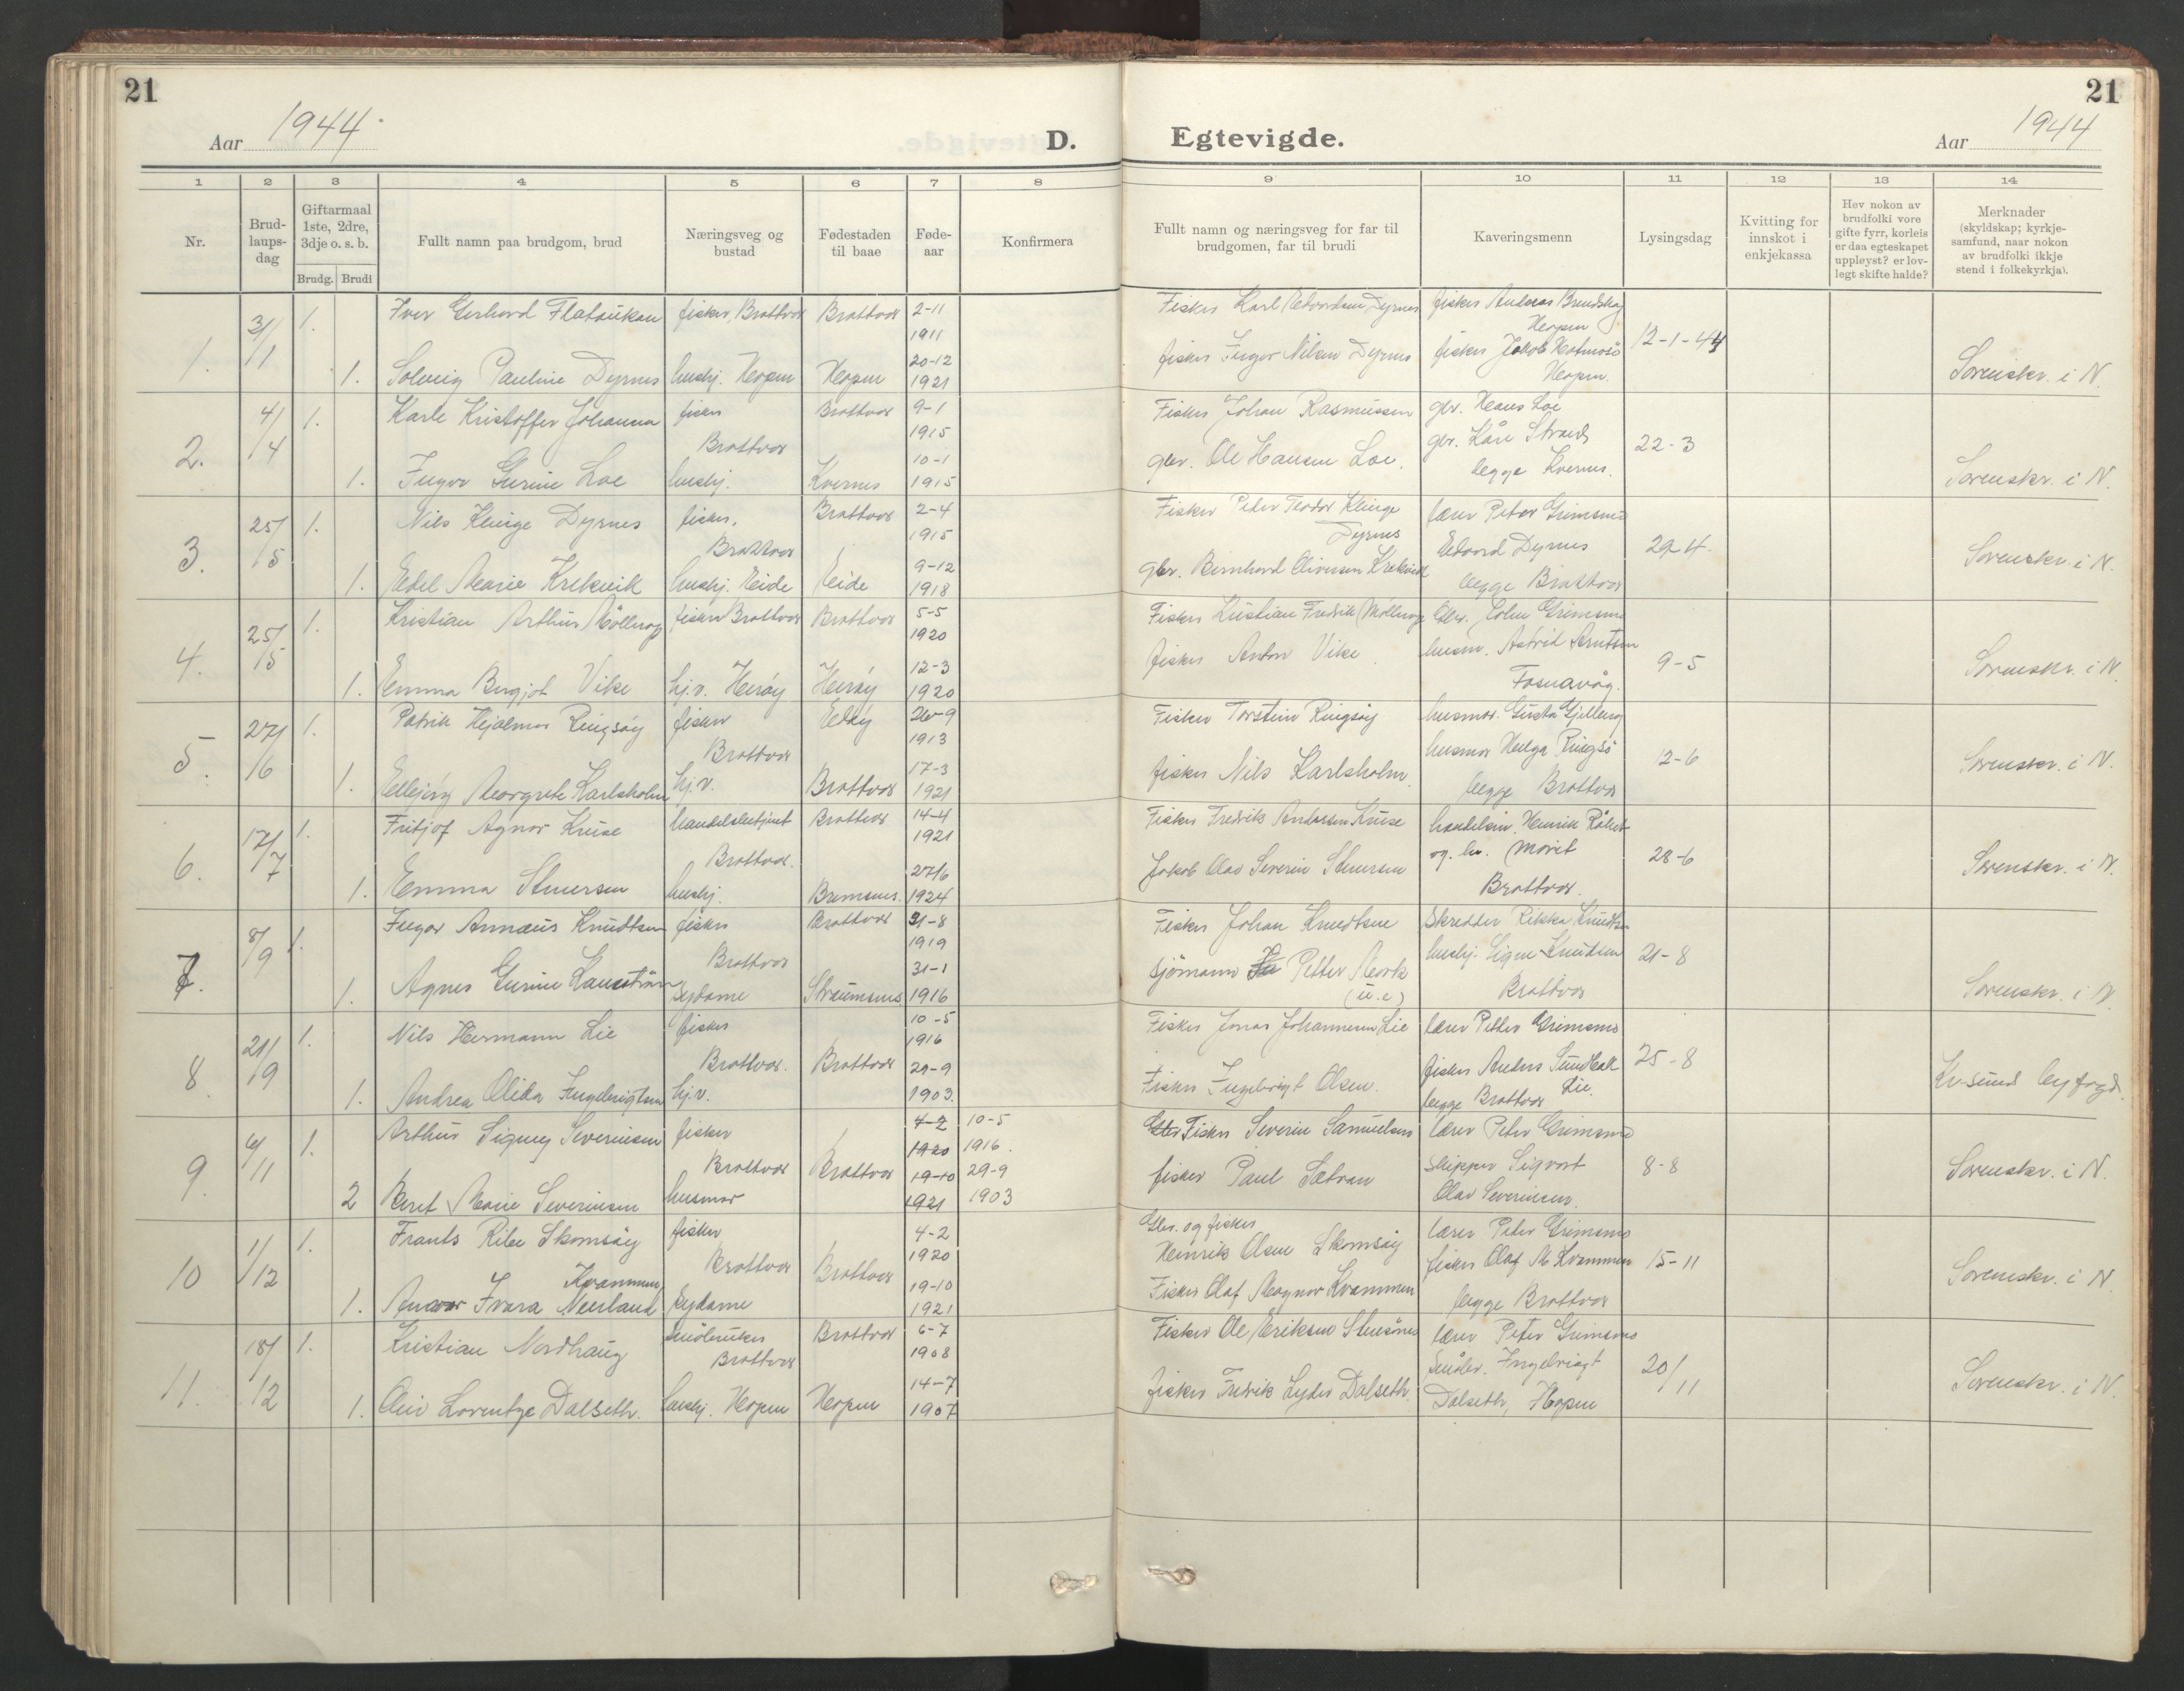 21
Aar 1944.
D.
1 2 3 4 5 6 7 8
Nr.
Brud-
laups-
dag
Giftarmaal
1ste, 2dre,
3dje o. s. b.
Brudg. Brudi
Fullt namn paa brudgom, brud
Næringsveg og
bustad
Fødestaden
til baae
Føde-
aar
Konfirmera
1. 3/1 1. Iver Gerhard fisker, Brattvær Brattvær 2-11
1911
1. Solveig Pauline Dyrnes hushj. Hopen Hopen 20-12
1921
2. 4/4 1. Karle Kristoffer fisker Brattvær 9-1
Brattvær 1915
1. Inger Gurine Loe hushj. Kvernes 10-1
1915
3. 25/5 1. Nils Klinge Dyrnes fisker. Brattvær 2-4
Brattvær 1915
1. Edel Marie Krekvik hushj. Eide Eide 9-12
1918
4. 25/5 1. Kristian Arthur fisker Brattvær Brattvær 5-5
1920
1. Emma Bergjot Vike hj.v. Herøy Herøy 12-3
1920
5. 27/6 1. Patrik Hjalmar Ringsøy fisker Edøy 26-9
Brattvær 1913
1. Margrete Karlsholm hj.v. Brattvær 17-3
1921
6. 17/7 1. Fritjof Agnar Kruse handelsbetjent Brattvær 14-4
Brattvær. 1921
1. Emma hushj. Bremsnes. 27/6
1924
7. 8/9 1. Inger Annæus Knudtsen fisker Brattvær 31-8
Brattvær 1919
1. Agnes Gurine sydame Straumsnes 31-1
1916
8. 21/9 1. Nils Hermann Lie fisker 10-5
Brattvær. Brattvær 1916
1. Andrea Olida Ingebrigtsen hj.v. 29-9
1903.
9. 6/11 1. Arthur Signey Severinsen fisker 4-2 10-5
Brattvær Brattvær 1920 1916.
2 Beret Marie Severinsen husmor 19-10 29-9
1921 1903
10 1/12 1. Frants Ribe Skomsøy fisker 4-2
Brattvær Brattvær 1920
Kvammen 19-10
1. Ivara Neerland sydame 1921
11. 18/12 1. Kristian Nordhaug småbruker Brattvær 6-7
Brattvær 1908
1. Lorentze Dalseth. hushj. Hopen Hopen 14-7
1907
21
Egtevigde.
Aar 1944
9 10 11 12 13 14
Fullt namn og næringsveg for far til
brudgomen, far til brudi
Kaveringsmenn
Lysingsdag
Kvitting for
innskot i
enkjekassa
Hev nokon av
brudfolki vore
gifte fyrr, korleis
er daa egteskapet
uppløyst? er lov-
legt skifte halde?
Merknader
(skyldskap; kyrkje-
samfund, naar nokon
av brudfolki ikkje
stend i folkekyrkja).
Fisker Karl Edvardsen Dyrnes fisker Anders
Hopen
fisker Inger Nilsen Dyrnes fisker Jakob Holmesø 12-1-44
Hopen. Sorenskr. i N.
Fisker Johan Rasmussen gbr. Hans Loe
gbr. Kåre Strand 22-3
gbr. Ole Hansen Loe. begge Kvernes. Sorenskr. i N.
Fisker Peter Teodor Klinge lærer Peter Grimsmo
Dyrnes Edvard Dyrnes 29-4.
gbr. Bernhard Oliversen Krekvik begge Brattvær Sorenskr. i N.
Fisker Kristian Fredrik Gbr. John Grimsmo
fisker Anton Vike husm. Astrid Knutsen 9-5
Fosnavåg. Sorenskr. i N.
Fisker Torstein Ringsøy husmor. Gusta
husmor Helga Ringsø 12-6
fisker Nils Karlsholm begge Brattvær Sorenskr. i N.
Fisker Fredrik Andersen Kruse handelsm. Henrik
og. hr. 28-6
Jakob Olav Severin Brattvær. Sorenskr. i N.
Fisker Johan Knudtsen Skredder Rikka Knudtsen
hushj. Signe Knudtsen 21-8
sjømann Petter Mork Brattvær
(u.e) Sorenskr. i N
Fisker Jonas Johannessen Lie lærer Petter Grimsmo
fisker Anders Sundbakk 25-8
Fisker Ingebrigt Olsen. begge Brattvær Lie. Kr-sund byfogd.
Fisker Severin Samuelsen lærer Peter Grimsmo
skipper Sigvart 8-8
fisker Paul Sætran Olav Severinsen. Sorenskr. i N.
Gbr. og fisker lærer Peter Grimsmo
Henrik Olsen Skomsøy fisker Olaf M. Kvammen 15-11
Fisker Olaf Magnor Kvammen begge Brattvær Sorenskr. i N
Fisker Ole Eriksen lærer Peter Grimsmo
småbr. Ingebrigt 20/11
fisker Fredrik Lyder Dalseth. Dalseth, Hopen Sorenskr. i N.